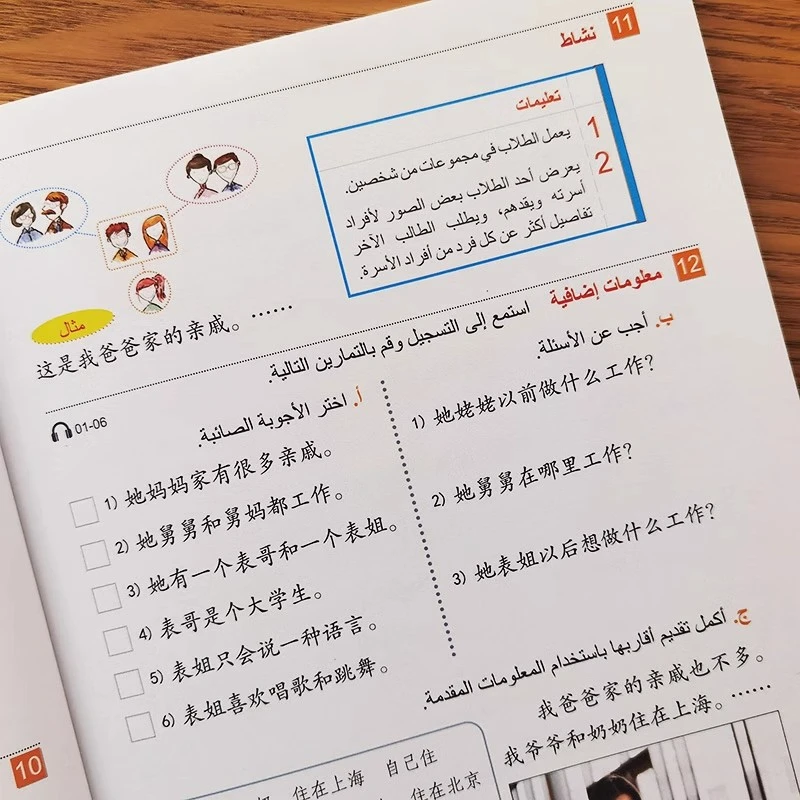 11 نشاط
تعليمات
1 يعمل الطلاب في مجموعات من شخصين.
2 يعرض أحد الطلاب بعض الصور لأفراد
أسرته ويقدمهم، ويطلب الطالب الآخر
تفاصيل أكثر عن كل فرد من أفراد الأسرة.
مثال
这是我爸爸家的亲戚。……
12 معلومات إضافية
استمع إلى التسجيل وقم بالتمارين التالية.
01-06
أ. اختر الأجوبة الصائبة.
1) 她妈妈家有很多亲戚。
2) 她舅舅和舅妈都工作。
3) 她有一个表哥和一个表姐。
4) 表哥是个大学生。
5) 表姐只会说一种语言。
6) 表姐喜欢唱歌和跳舞。
ب. أجب عن الأسئلة.
1) 她姥姥以前做什么工作?
2) 她舅舅在哪里工作?
3) 她表姐以后想做什么工作?
ج. أكمل تقديم أقاربها باستخدام المعلومات المقدمة.
我爸爸家的亲戚也不多。
我爷爷和奶奶住在上海。……
住在上海 自己住
住在北京
10